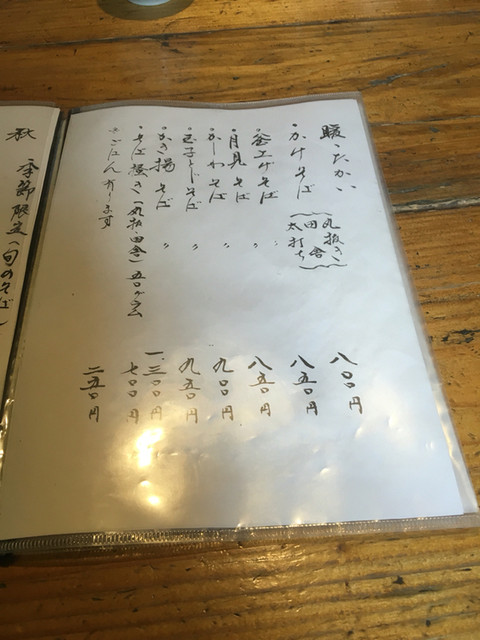 暖たかい
・かけそば
丸抜き
田舎
太打ち
八〇〇円
・釜上げそば 〃 八五〇円
・月見そば 〃 八五〇円
・かしわそば 〃 九〇〇円
・玉子とじそば 〃 九五〇円
・かき揚そば 〃 一、三〇〇円
・そば掻き(丸抜 田舎)五〇グラム 七〇〇円
ごはん有ります 二五〇円
秋 季節限定(旬のそば)